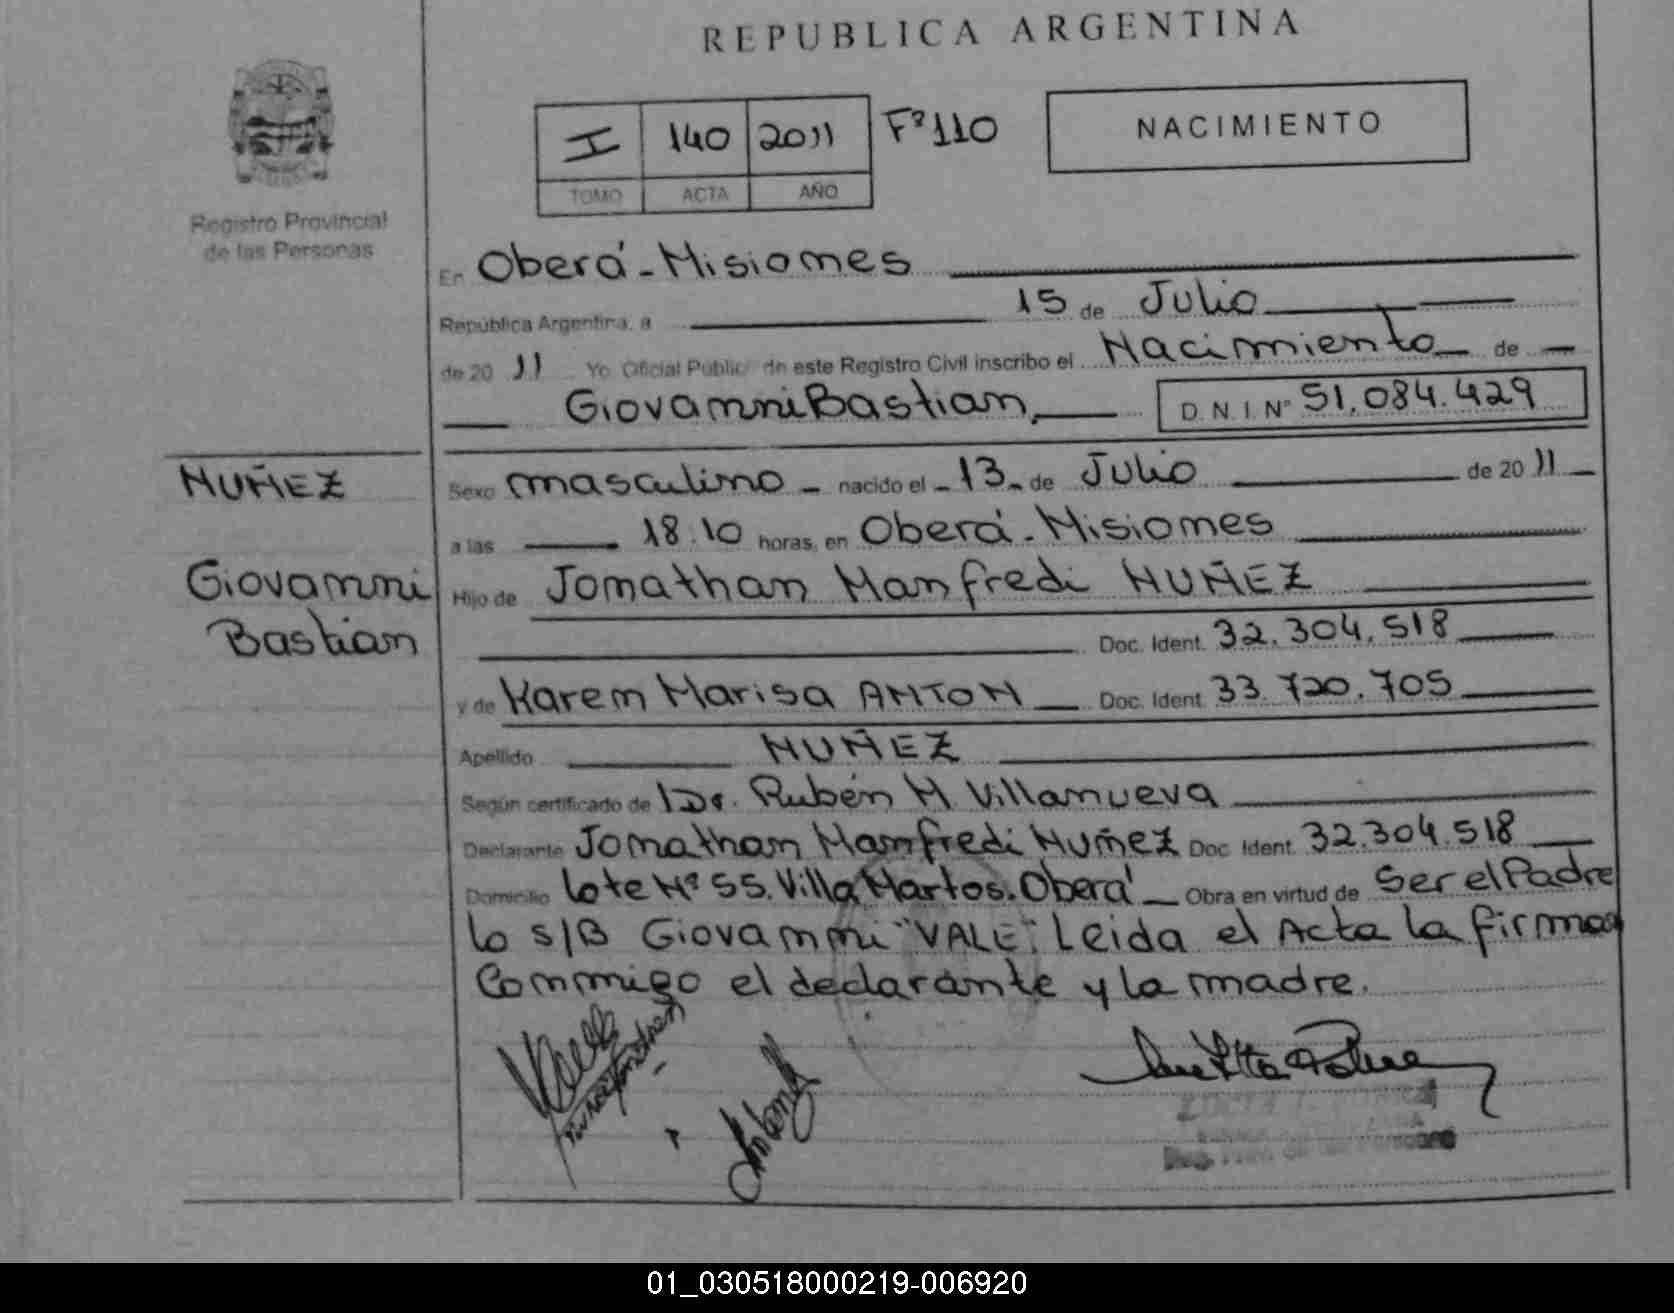 REPUBLICA ARGENTINA
I 140 2011 Fº110
TOMO ACTA AÑO
NACIMIENTO
Registro Provincial
de las Personas
En Oberá - Misiones
República Argentina, a 15 de Julio
de 2011 Yo Oficial Público de este Registro Civil inscribo el Nacimiento de
Giovanni Bastian, D.N.I. Nº 51.084.429
NUÑEZ
Giovanni
Bastian
Sexo masculino - nacido el - 13 - de Julio de 2011
a las 18.10 horas, en Oberá - Misiones
Hijo de Jonathan Manfredi NUÑEZ
Doc. Ident. 32.304.518
y de Karen Marisa ANTON Doc. Ident. 33.720.705
Apellido NUÑEZ
Según certificado de Dr. Rubén H. Villanueva
Declarante Jonathan Manfredi Nuñez Doc. Ident. 32.304.518
Domicilio Lote Nº 55. Villa Martos. Oberá Obra en virtud de Ser el Padre
lo S/B Giovanni "VALE". Leida el Acta la firman
Conmigo el declarante y la madre.
01_030518000219-006920